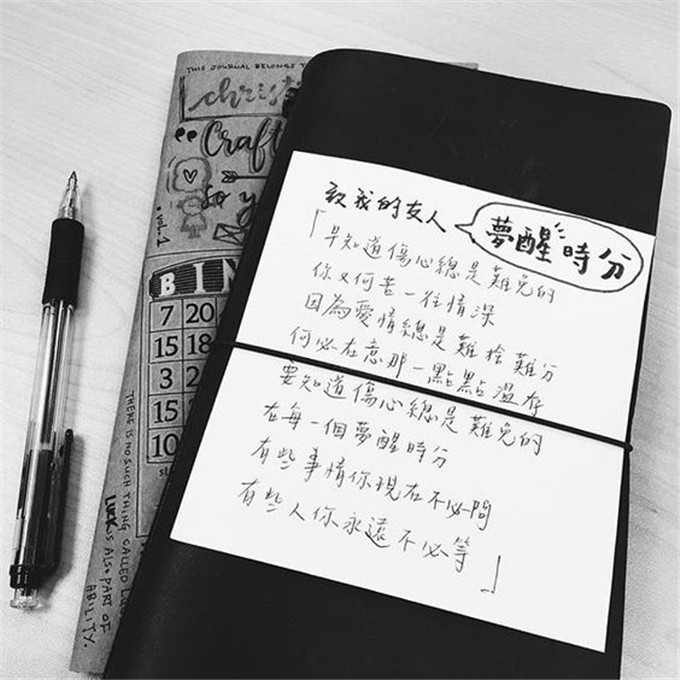 THIS JOURNAL BELONGS T
christ
"Craft
so y
vol.1
BIN
7 20
15 18
3 2
15
10
THERE IS NO SUCH THING CALLED LUCK
LUCK IS ALSO PART OF
ABILITY.
致我的友人
夢醒時分
「早知道傷心總是難免的
你又何苦一往情深
因為愛情總是難捨難分
何必在意那一點點溫存
要知道傷心總是難免的
在每一個夢醒時分
有些事情你現在不必問
有些人你永遠不必等」